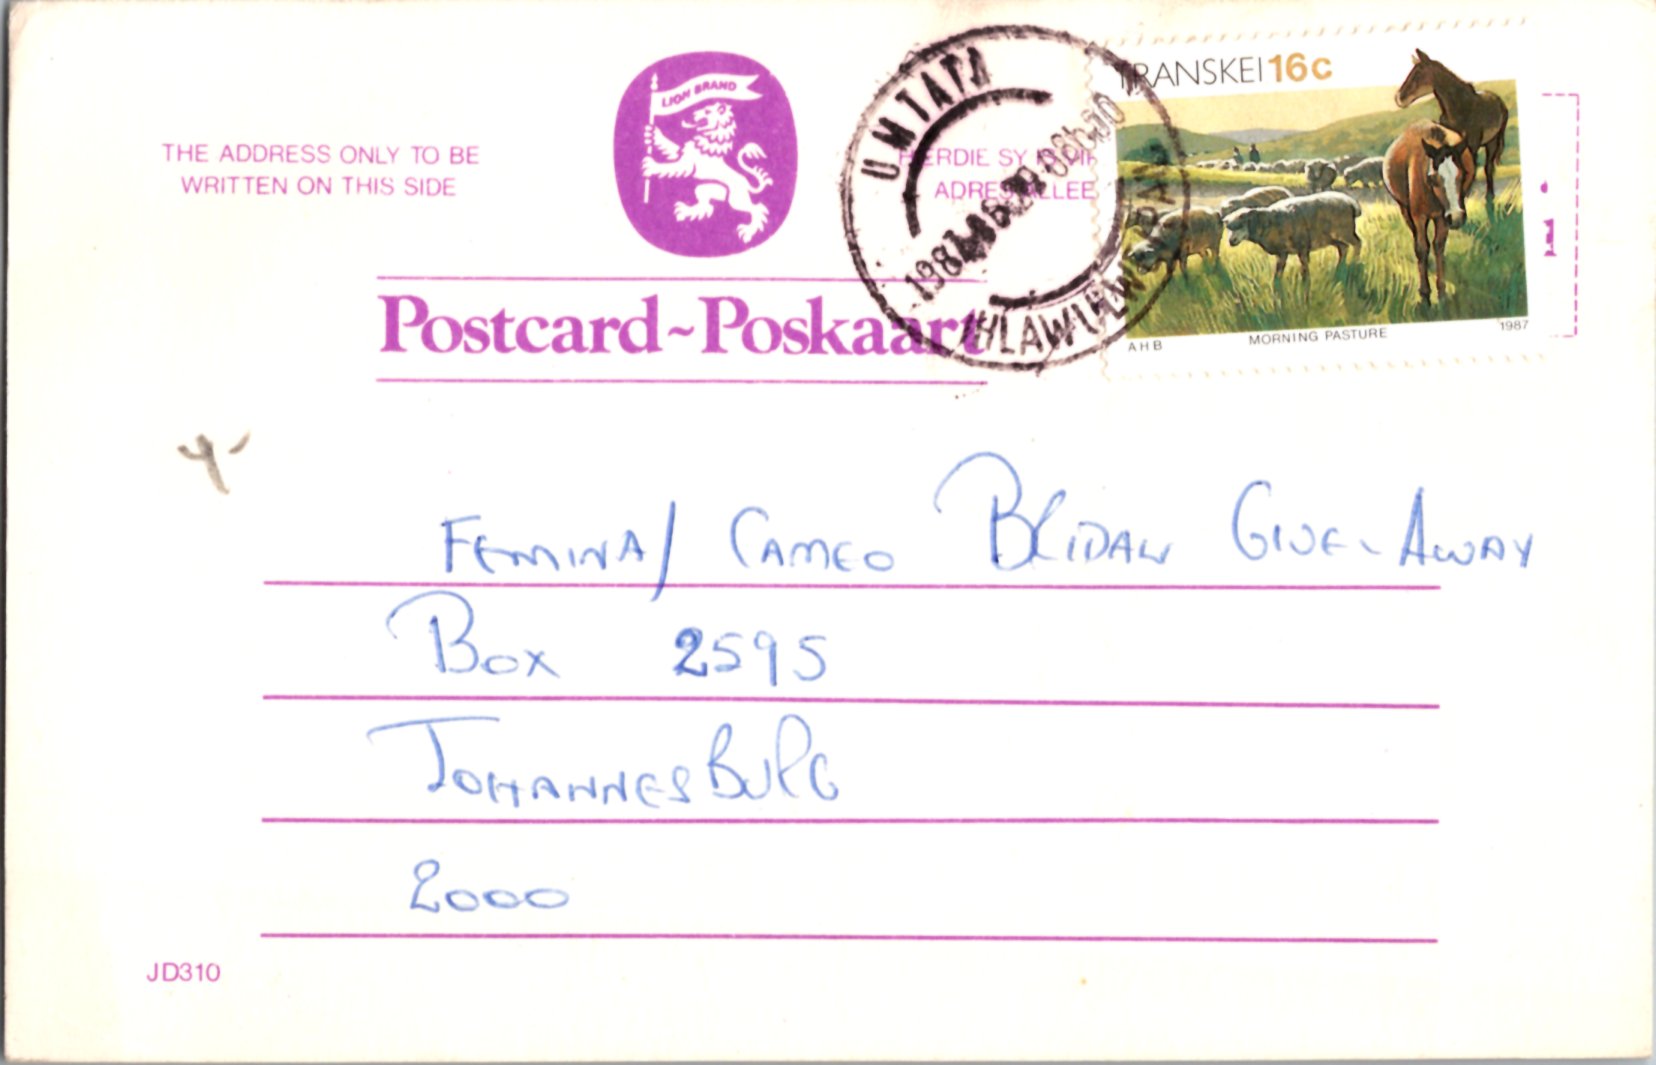 LION BRAND
THE ADDRESS ONLY TO BE
WRITTEN ON THIS SIDE
HIERDIE SY
ADRES ALLEE
UMTATA
TRANSKEI 16c
AHB MORNING PASTURE 1987
Postcard~Poskaart
FEMINA/ CAMEO BRIDAL GIVE-AWAY
BOX 2595
JOHANNESBURG
2000
JD310